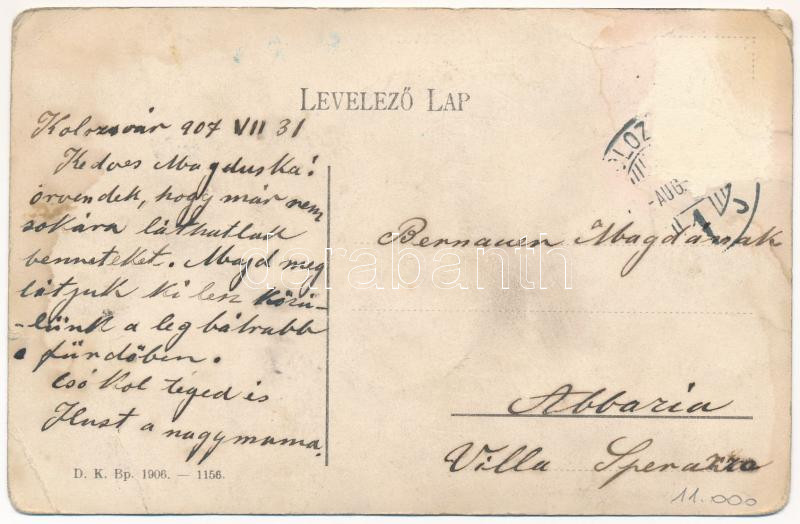 LEVELEZŐ LAP
Kolozsvár 907 VII 31
Kedves Magduska!
örvendek, hogy már nem
sokára láthatlak
benneteket. Majd meg
látjuk ki lesz közü-
-lünk a legbátrabb
a fürdőben.
Csókol téged és
a nagymama.
D. K. Bp. 1906. — 1156.
OLOZ
-AUG.-
1
Bernauer Magdának
Abbazia
Villa Speranza
11.000
darabanth